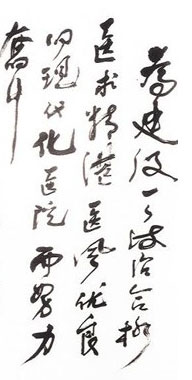 為建设一个政治合格
医术精湛医风优良
的现代化医院而努力
奮斗